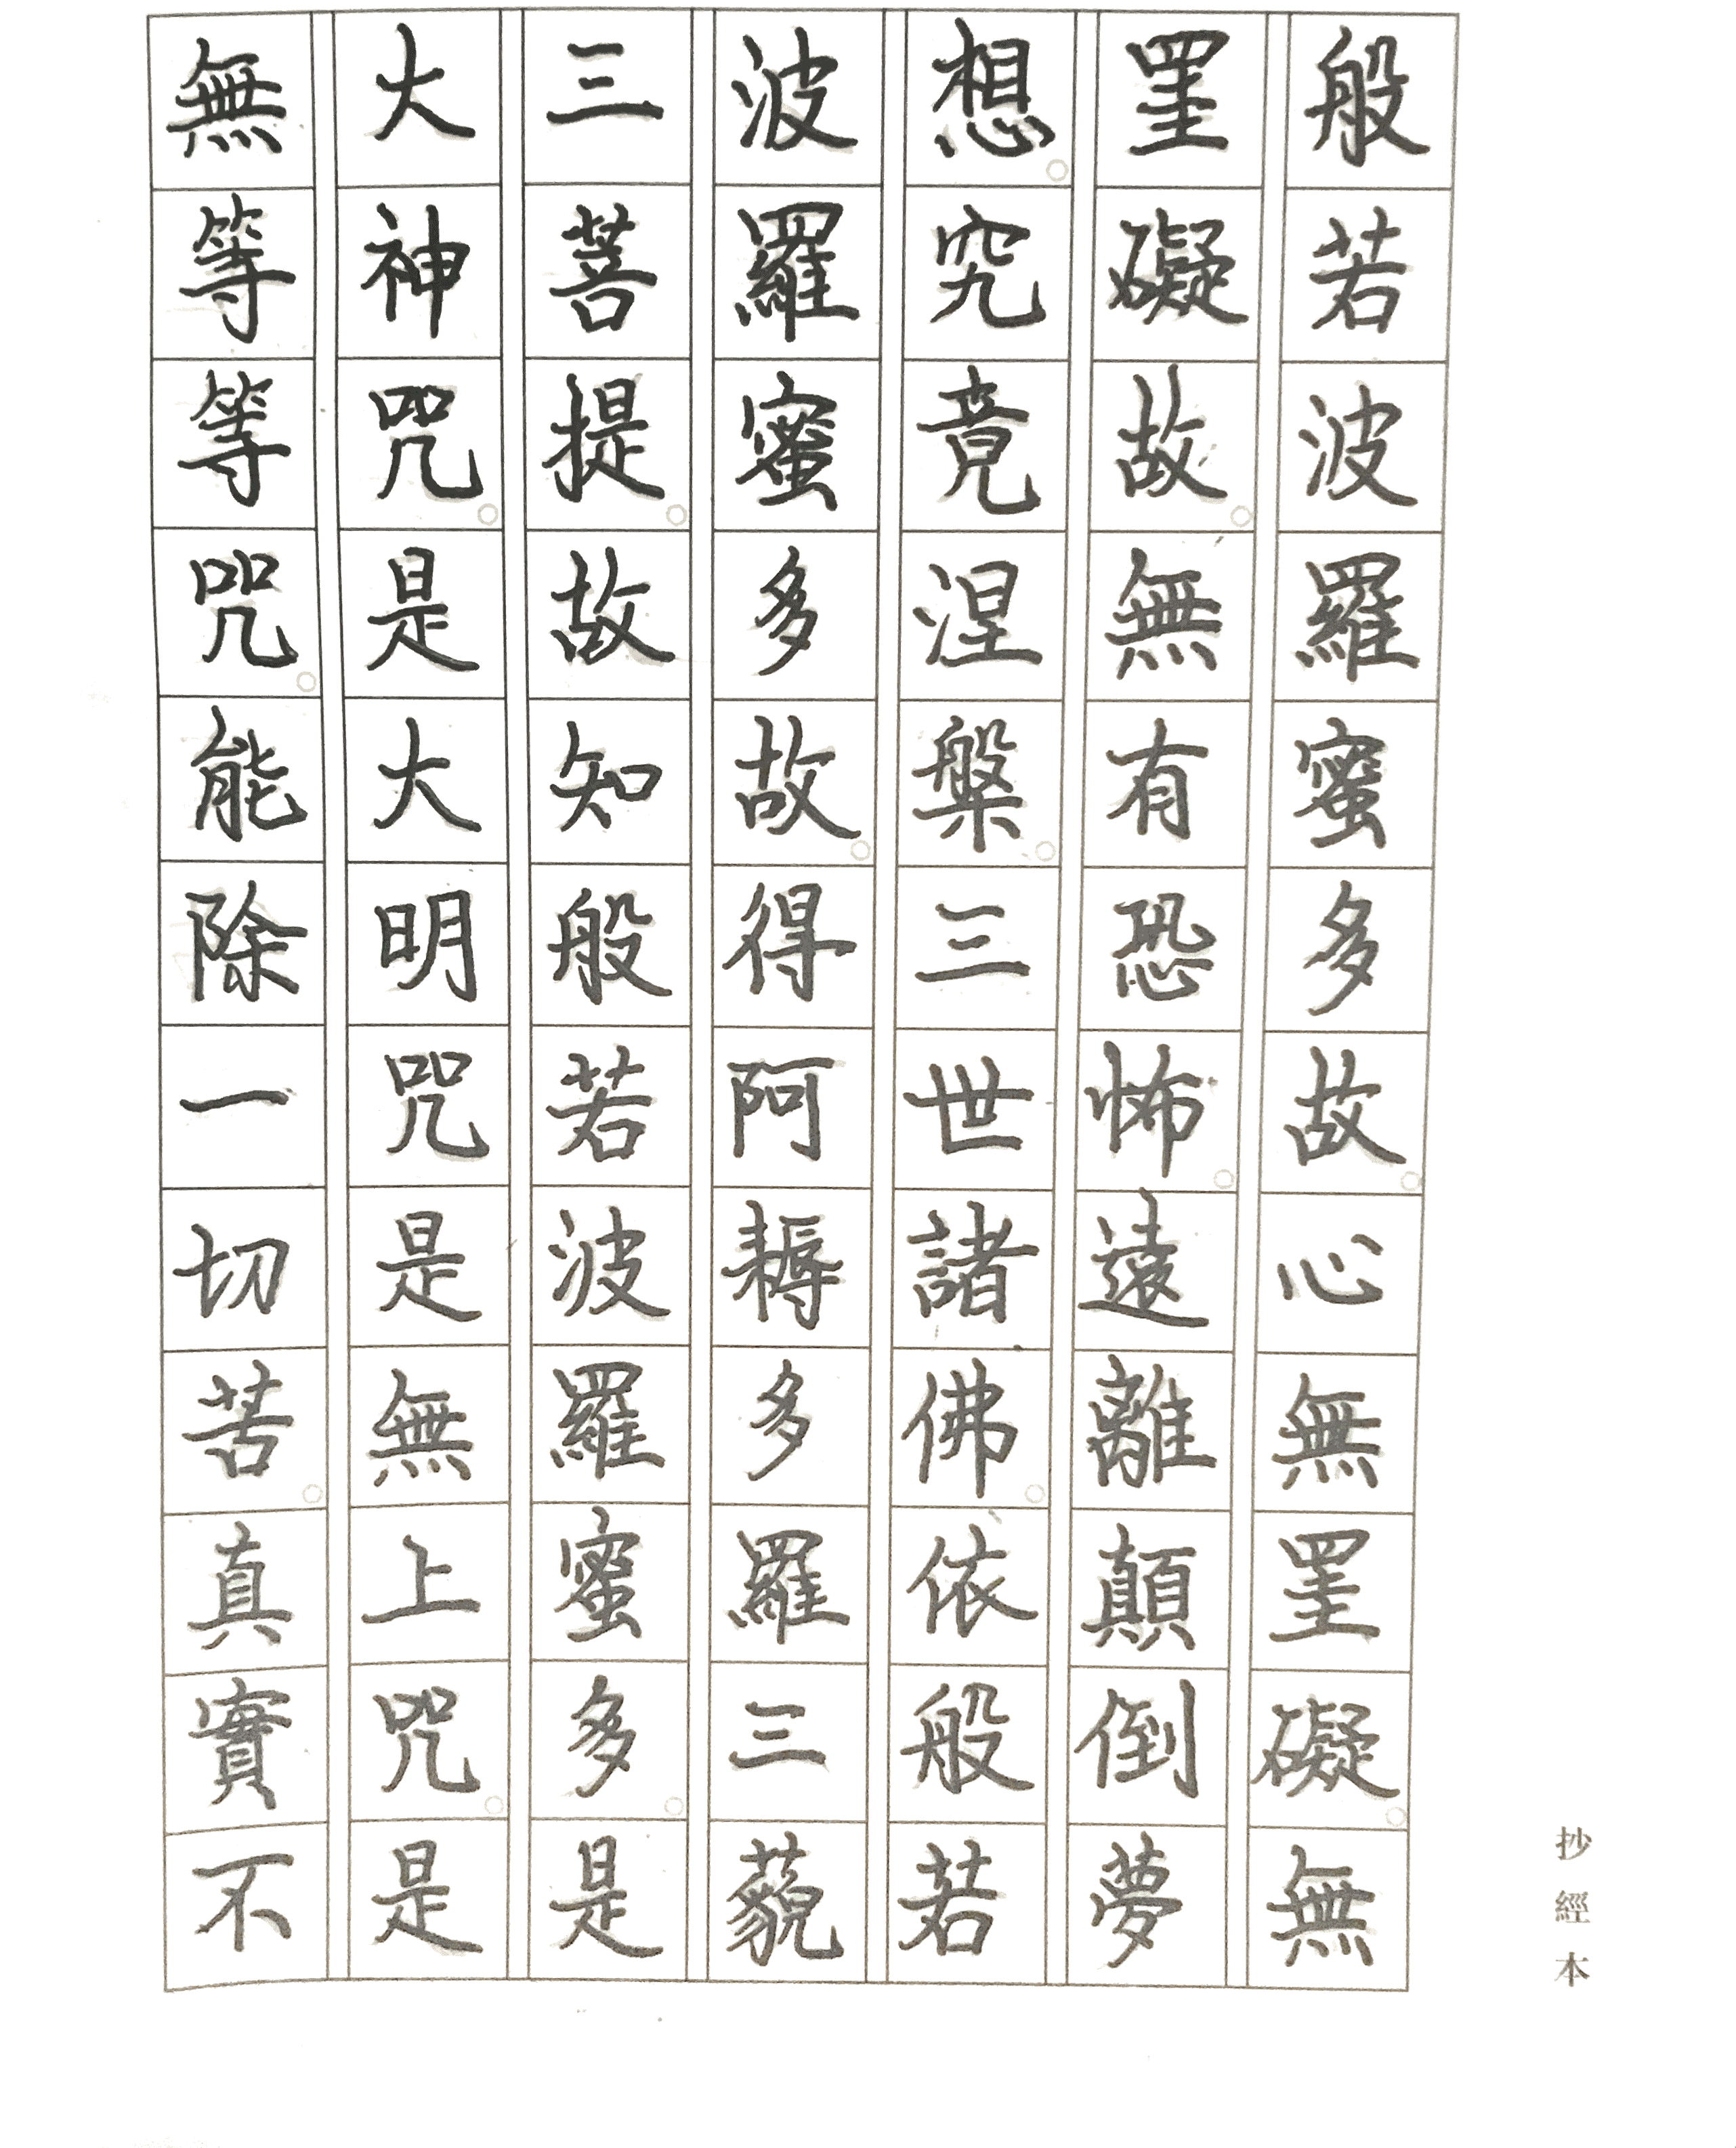 般若波羅蜜多故。心無罣礙。無
罣礙故。無有恐怖。遠離顛倒夢
想。究竟涅槃。三世諸佛。依般若
波羅蜜多故。得阿耨多羅三藐
三菩提。故知般若波羅蜜多。是
大神咒。是大明咒是無上咒。是
無等等咒。能除一切苦。真實不
抄經本